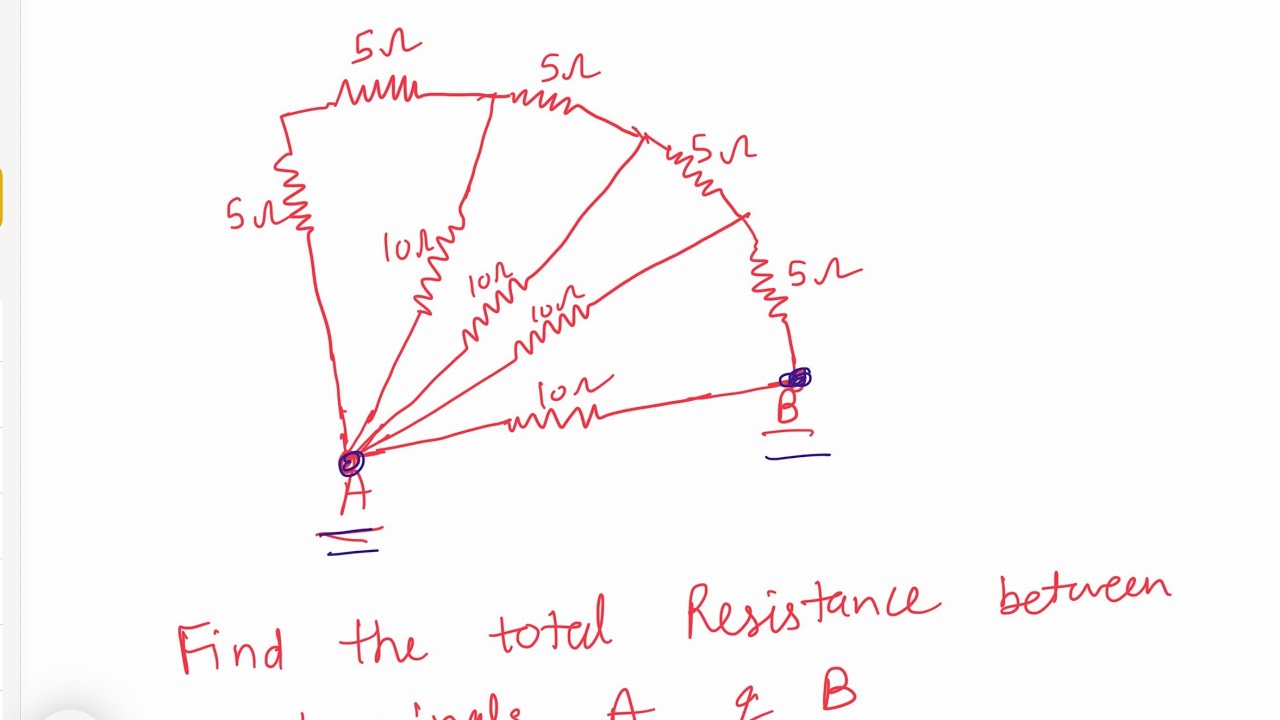 5Ω
5Ω
5Ω
5Ω
10Ω
10Ω
5Ω
10Ω
10Ω
B
A
Find the total Resistance between
A & B